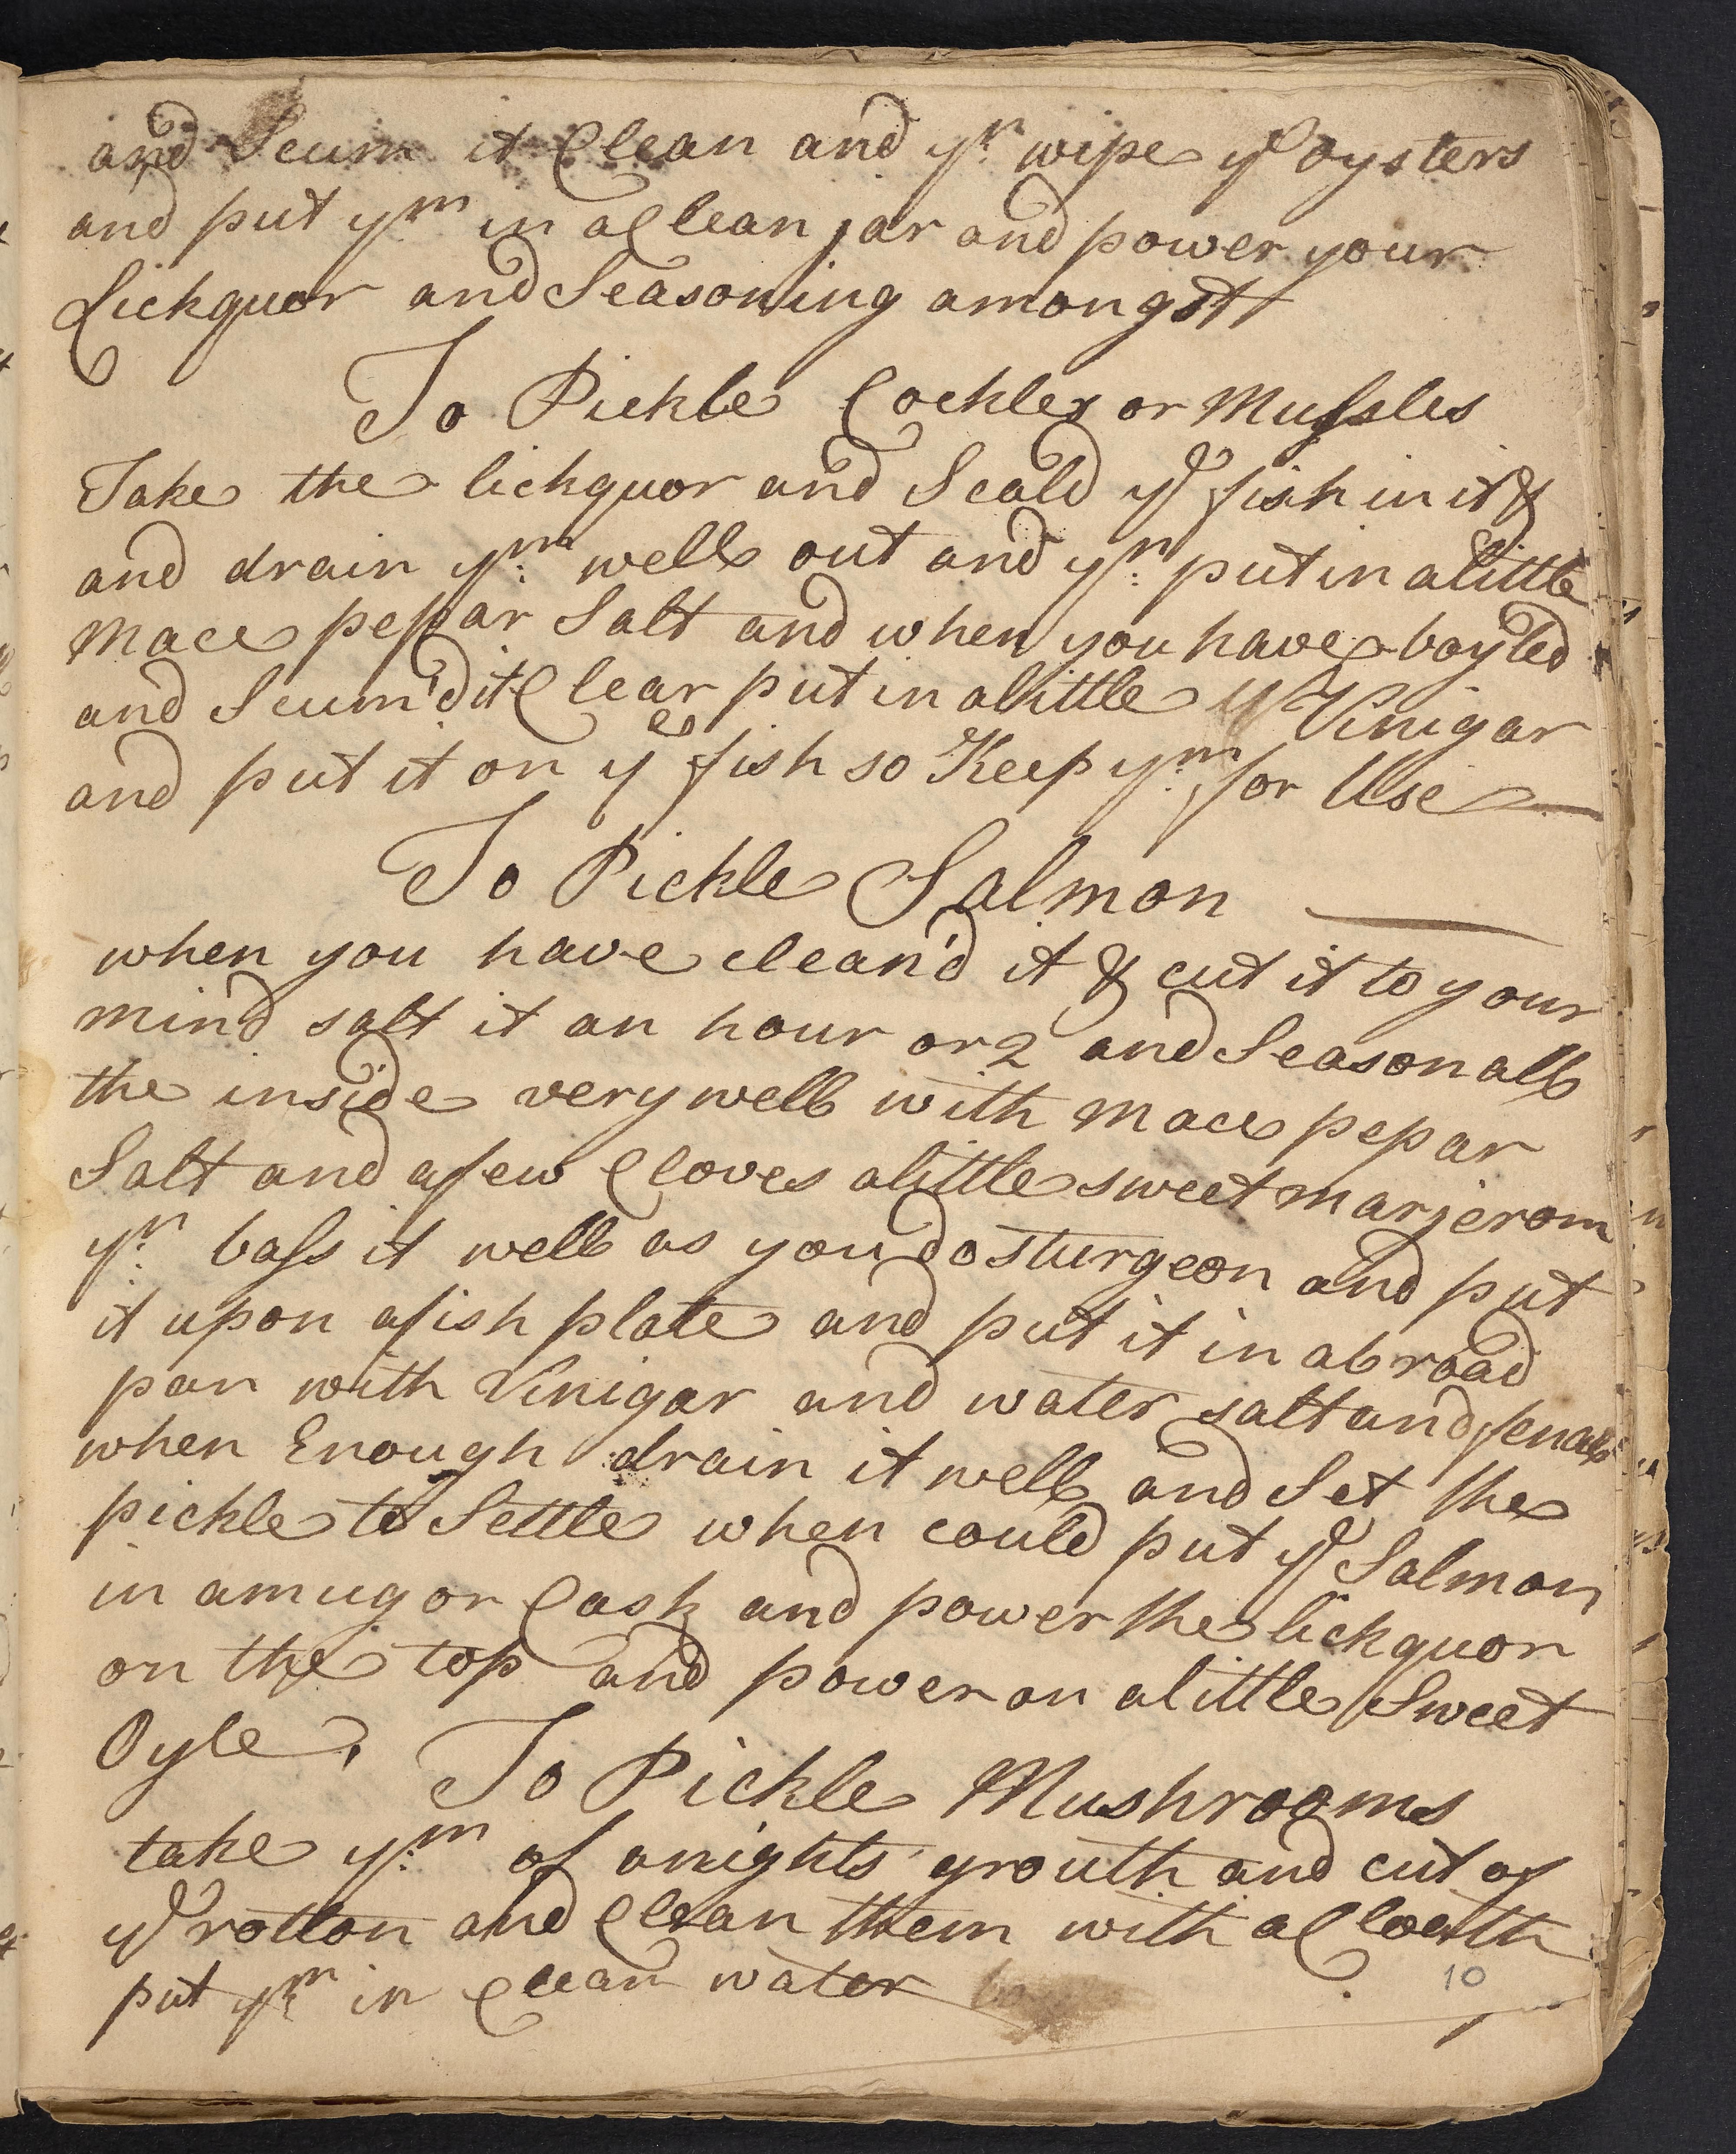 and Scum it Clean and yn wipe ye oysters
and put ym in a Clean jar and power your
Lickquor and Seasoning amongst
To Pickle Cockles or Mussles
Take the lickquor and Scald ye fish in it &
and drain ym: well out and yn: put in a little
mace pepar Salt and when you have boyled
and Scum'd it Clear put in a little Vinigar
and put it on ye fish so Keep ym: for Use
To Pickle Salmon
when you have clean'd it & cut it to your
mind salt it an hour or 2 and Season all
the inside very well with mace pepar
Salt and a few Cloves a little sweet marjerom
yn: bass it well as you do sturgeon and put
it upon a fish plate and put it in a broad
pan with Vinigar and water salt and
when Enough drain it well and Set the
pickle to Settle when could put ye Salmon
in a mug or Cask and power the lickquor
on the top and power on a little Sweet
Oyle,
To Pickle Mushrooms
take ym: of a nights grouth and cut of
ye rotton and Clean them with a Cloath
put ym in Clean water
10